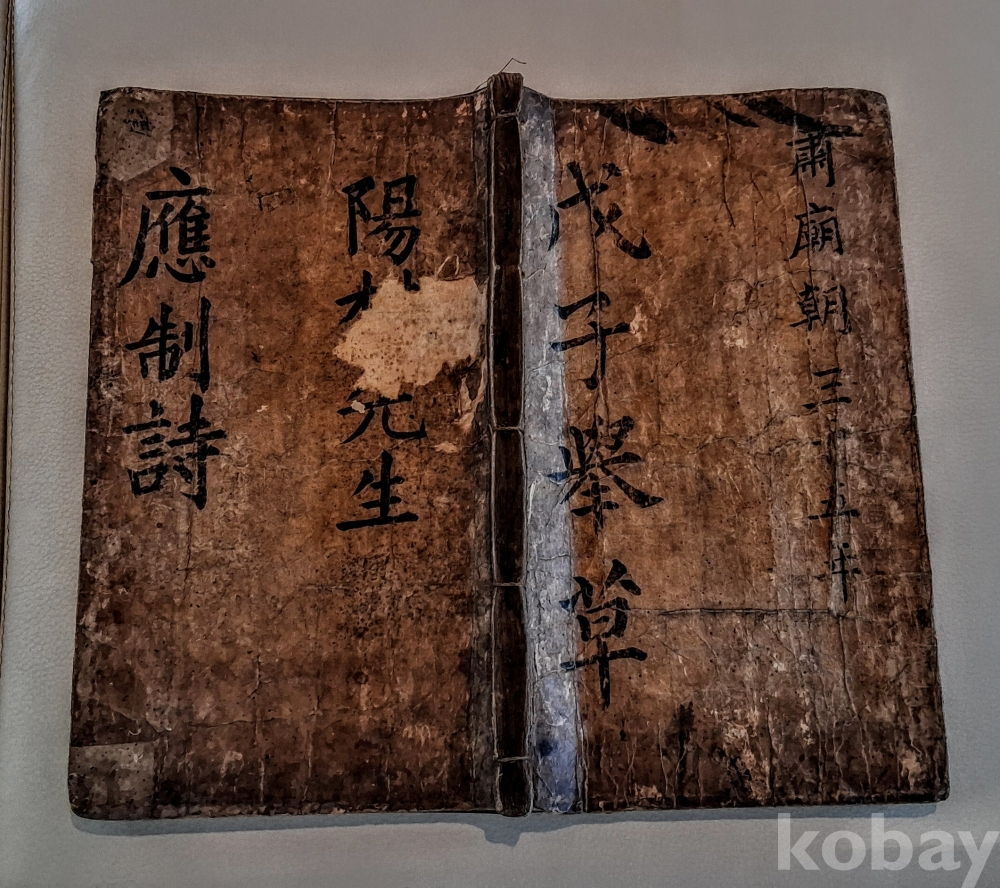 肅廟朝三十五年
戊子擧草
陽 生
應制詩
kobay